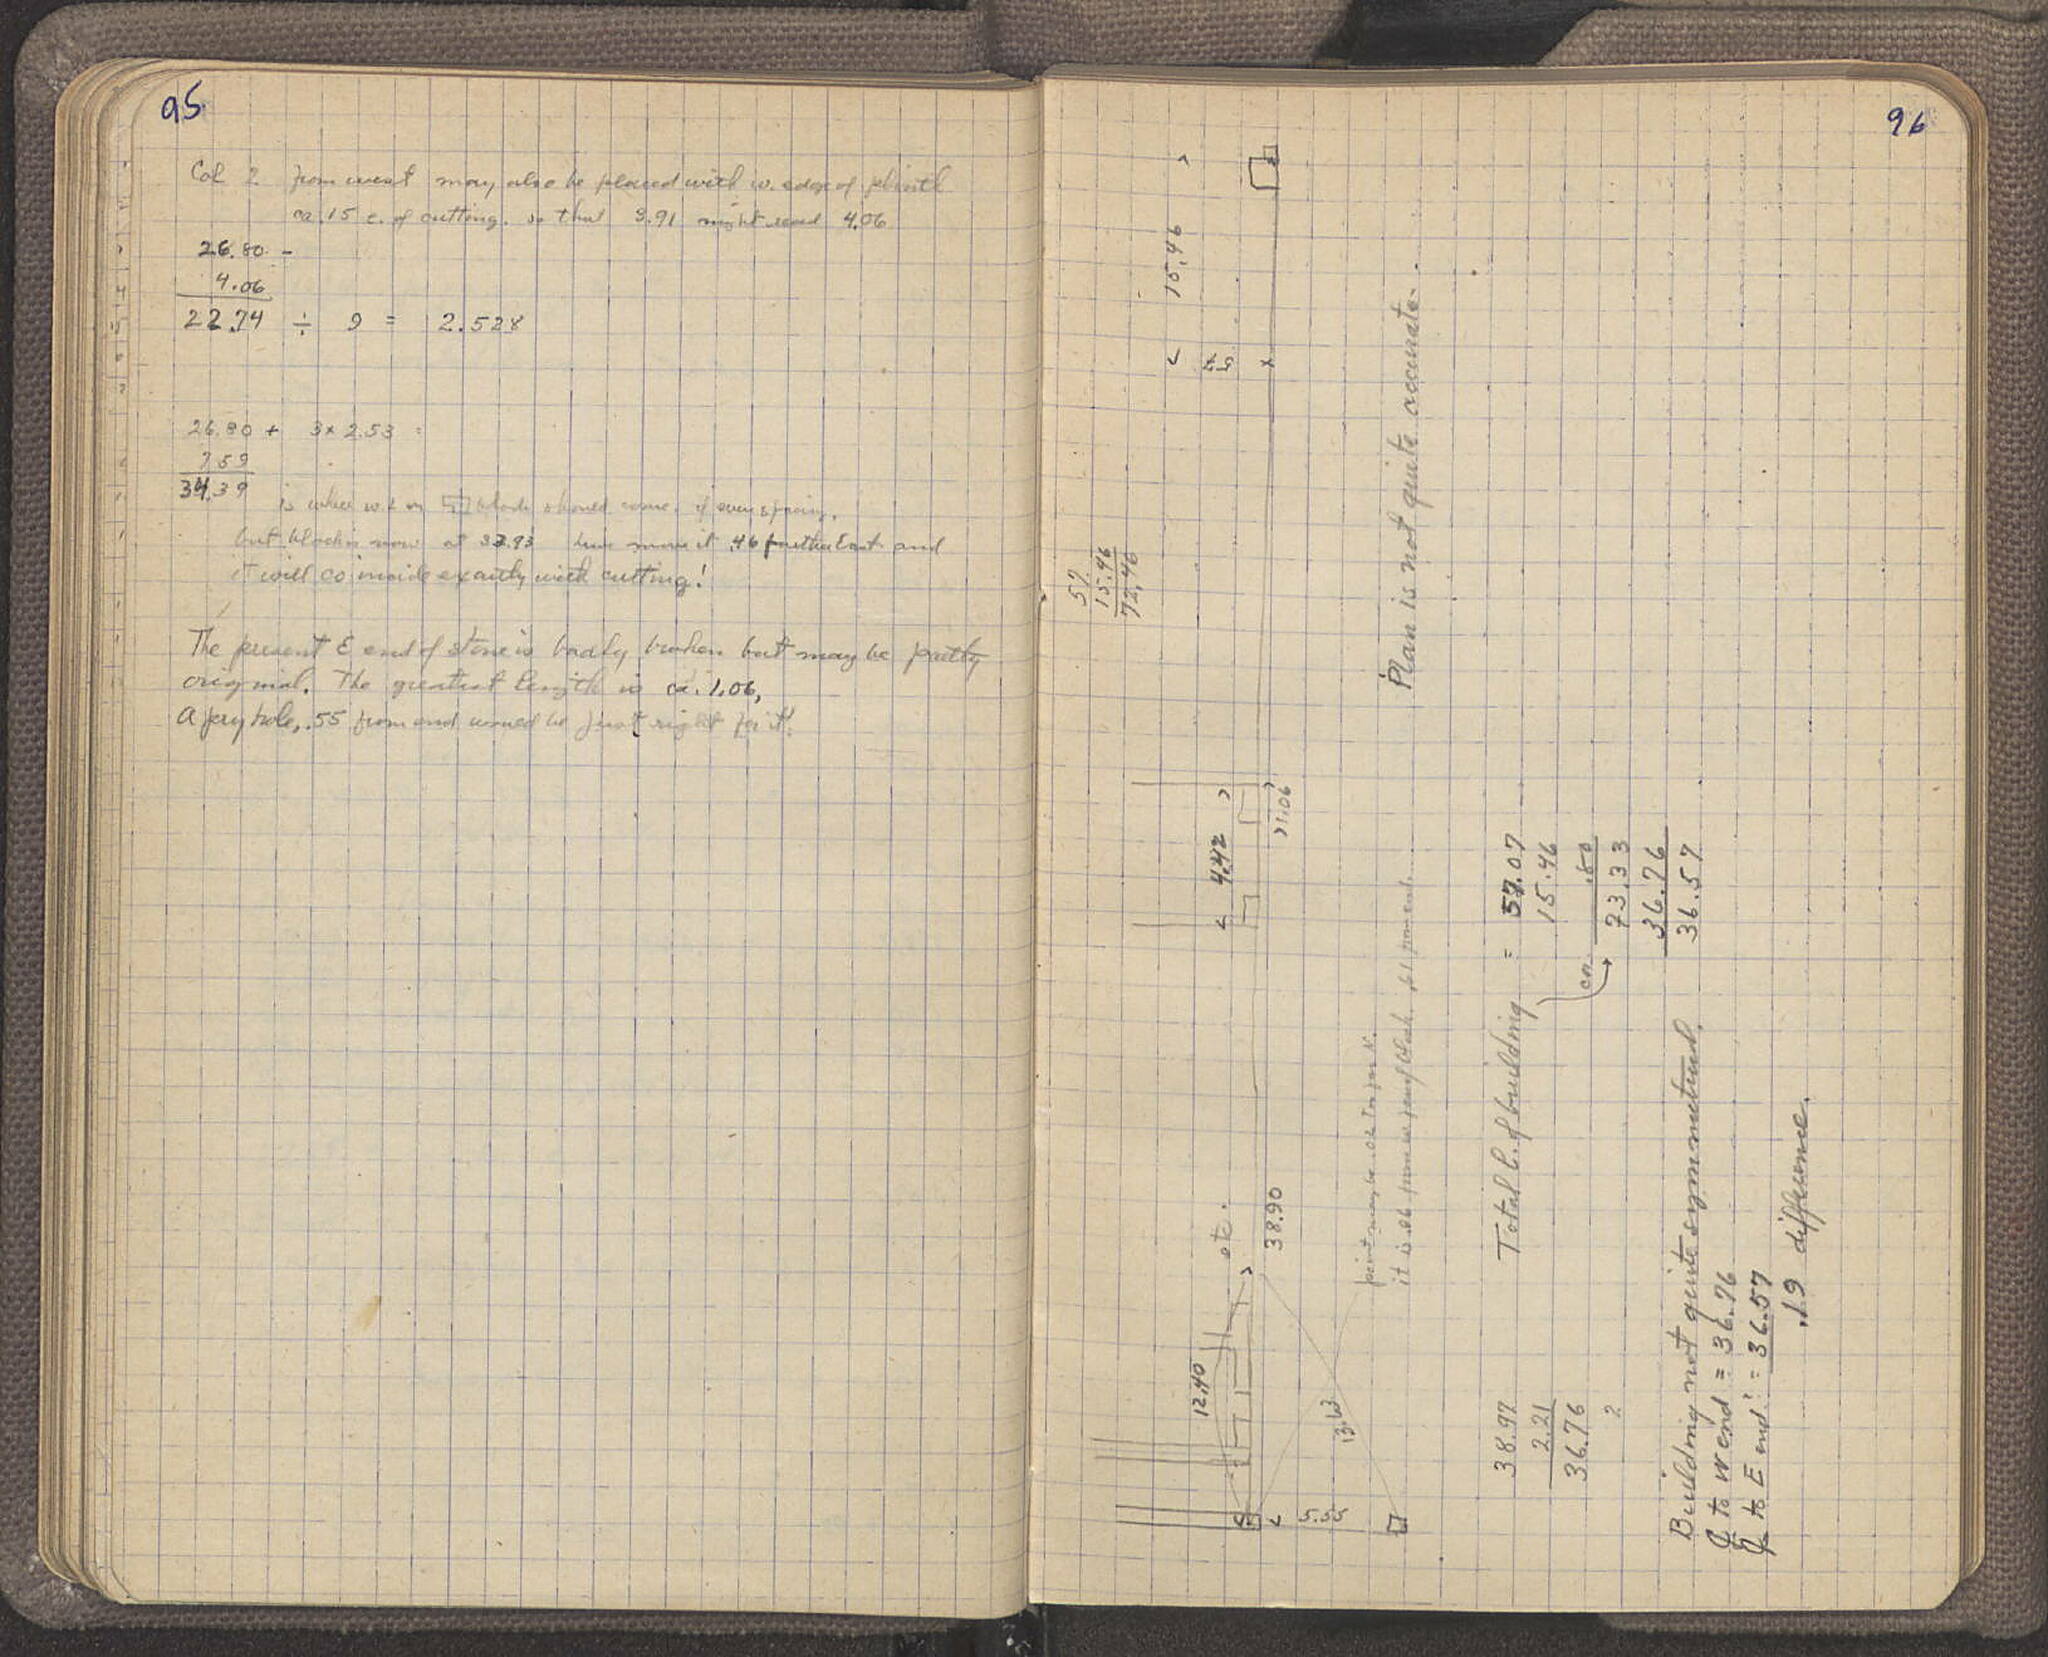 95
Col 2 from west may also be placed with w. edge of plinth
ca 15 e. of cutting. so that 3.91 might read 4.06
26.80 -
4.06
22.74 ÷ 9 = 2.528
26.80 + 3 x 2.53 =
7 59
34.39
is where w. on block should come, if even spacing.
but block is now at 33.93 hence move it .46 further East and
it will coincide exactly with cutting!
The present E end of stone is badly broken but may be partly
original. The greatest length is ca. 1.06,
A pry hole, .55 from end would be just right for it!
96
15.46
57
57
15.46
72.46
4.42
1.06
Plan is not quite accurate.
12.40
etc.
38.90
13.63
5.55
point may be .02 too far N.
it is .06 from w face of block, .61 from end.
Total l. of building = 57.07
15.46
cor. .80
73.33
36.76
36.57
38.97
2.21
36.76
2
Building not quite symmetrical.
℄ to W end = 36.76
℄ to E end = 36.57
.19 difference.